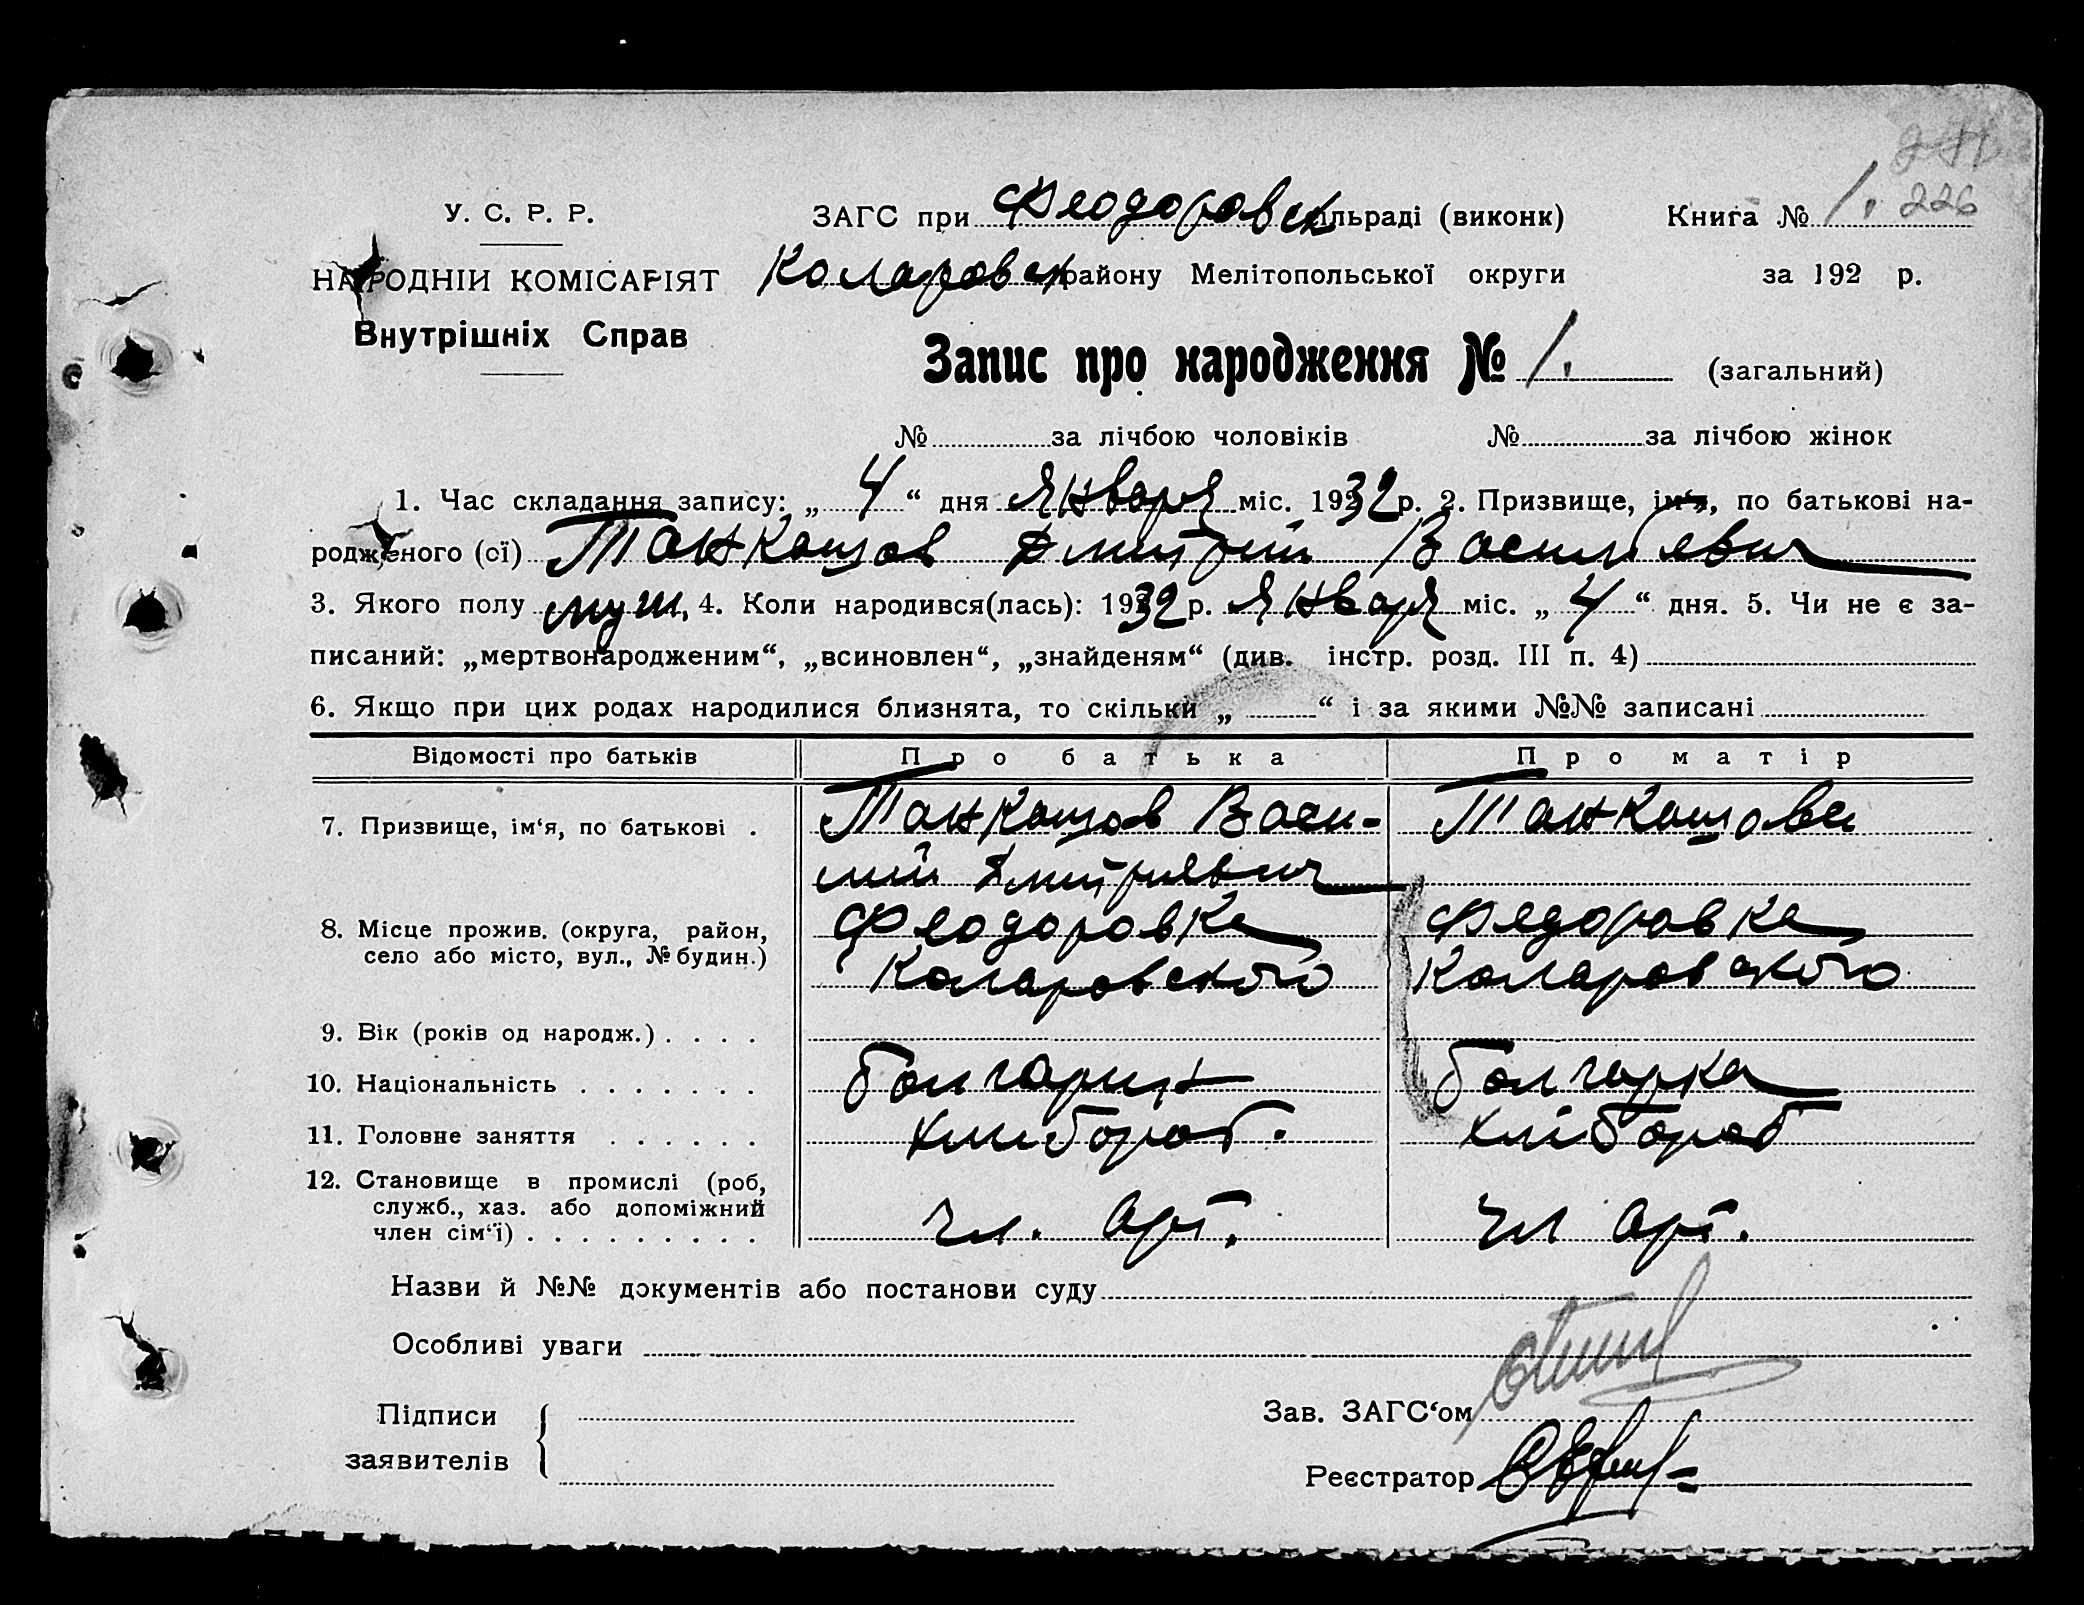 271
У. С. Р. Р.
ЗАГС при Феодоровск сільраді (виконк)
Книга № 1. 226
НАРОДНІЙ КОМІСАРІЯТ
Коларовск району Мелітопольської округи
за 192 р.
Внутрішніх Справ
Запис про народження № 1. (загальний)
№ за лічбою чоловіків № за лічбою жінок
1. Час складання запису: „ 4 “ дня Января міс. 1932 р. 2. Призвище, ім‘я, по батькові на-
родженого (ої) Танкошов Дмитрий Васильевич
3. Якого полу муж. 4. Коли народився(лась): 1932 р. Января міс. „ 4 “ дня. 5. Чи не є за-
писаний: „мертвонародженим“, „всиновлен“, „знайденям“ (див. інстр. розд. III п. 4)
6. Якщо при цих родах народилися близнята, то скільки „ “ і за якими №№ записані
Відомості про батьків Про батька Про матір
7. Призвище, ім‘я, по батькові . Танкошов Васи- Танкошова
лий Дмитриевич
8. Місце прожив. (округа, район, Феодоровка Федоровка
село або місто, вул., № будин.) Коларовского Коларовского
9. Вік (років од народж.) . . . .
10. Національність . . . . . . . болгарин болгарка
11. Головне заняття . . . . . . хлибороб. хлібороб
12. Становище в промислі (роб,
служб., хаз. або допоміжний
член сім‘ї) . . . . . . . . . чл. арт. чл арт.
Назви й №№ документів або постанови суду
Особливі уваги
Підписи
заявителів
Зав. ЗАГС‘ом
Реєстратор